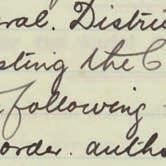 ral. Distri
sting the C
following
order. autho